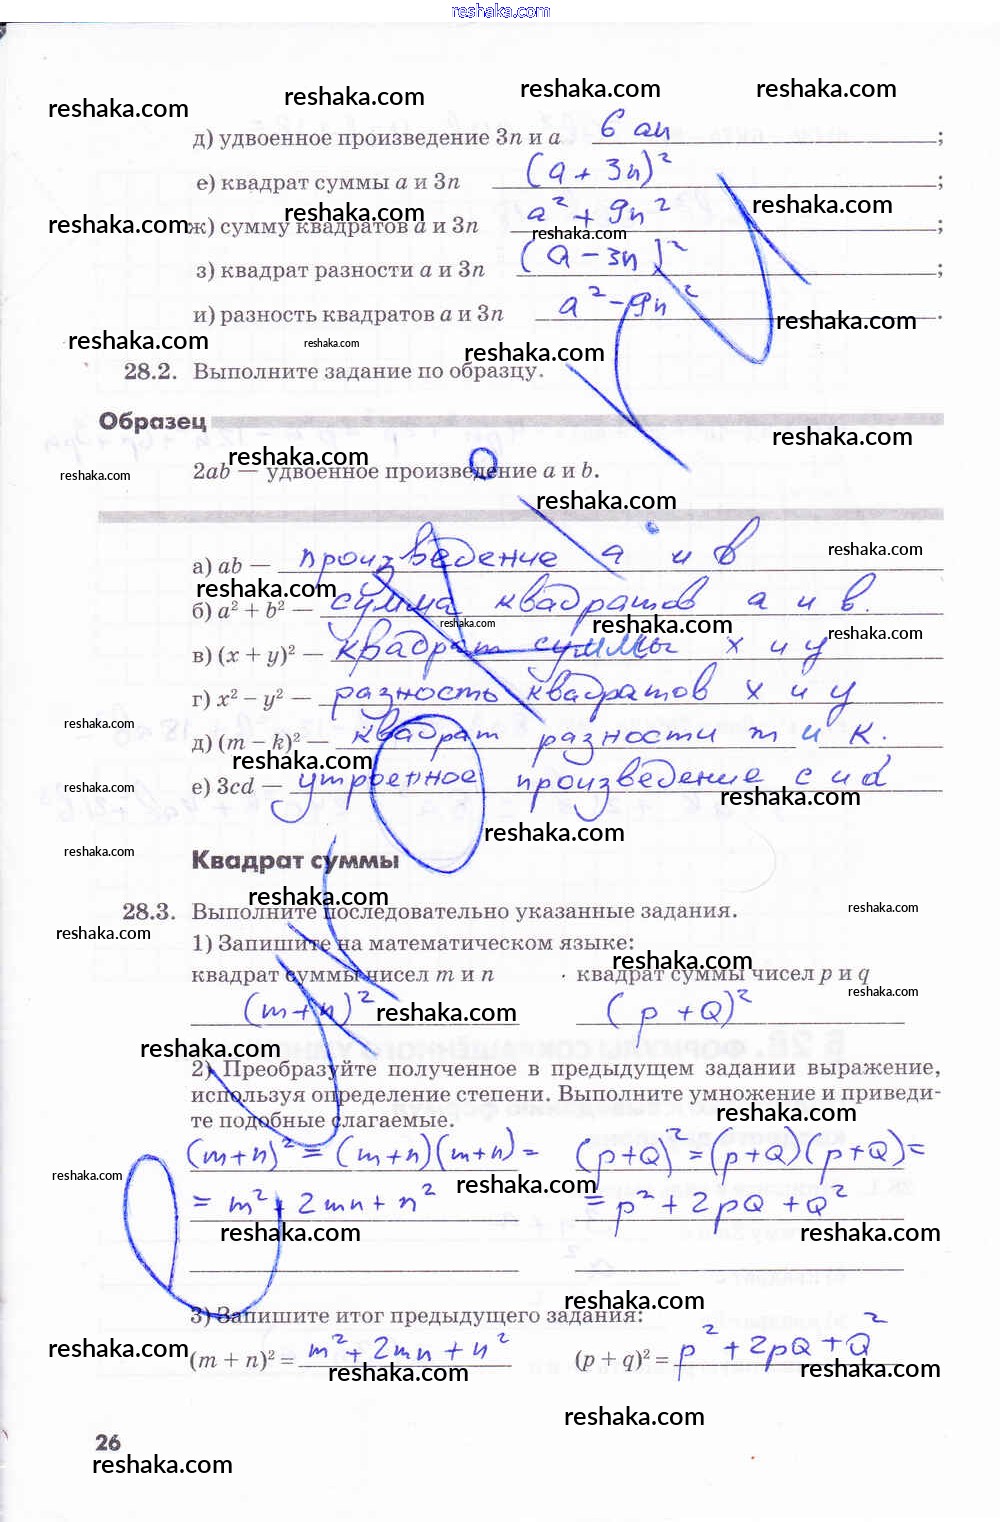 reshaka.com
reshaka.com reshaka.com reshaka.com reshaka.com
д) удвоенное произведение 3n и a 6an ;
е) квадрат суммы a и 3n (a + 3n)² ;
reshaka.com reshaka.com reshaka.com
ж) сумму квадратов a и 3n a² + 9n² ;
reshaka.com
з) квадрат разности a и 3n (a − 3n)² ;
и) разность квадратов a и 3n a² − 9n² .
reshaka.com reshaka.com reshaka.com reshaka.com
28.2. Выполните задание по образцу.
Образец
reshaka.com reshaka.com reshaka.com
2ab — удвоенное произведение a и b.
reshaka.com
а) ab — произведение а и в
reshaka.com reshaka.com
б) a² + b² — сумма квадратов а и в.
reshaka.com reshaka.com reshaka.com
в) (x + y)² — квадрат суммы х и у
г) x² − y² — разность квадратов х и у
reshaka.com
д) (m − k)² — квадрат разности m и к.
reshaka.com
е) 3cd — утроенное произведение с и d
reshaka.com reshaka.com
reshaka.com
Квадрат суммы
reshaka.com
reshaka.com reshaka.com
28.3. Выполните последовательно указанные задания.
reshaka.com
1) Запишите на математическом языке:
reshaka.com
квадрат суммы чисел m и n квадрат суммы чисел p и q
reshaka.com
(m+n)² (p+Q)²
reshaka.com
reshaka.com
2) Преобразуйте полученное в предыдущем задании выражение,
используя определение степени. Выполните умножение и приведи-
те подобные слагаемые.
reshaka.com
(m+n)² = (m+n)(m+n) = (p+Q)² = (p+Q)(p+Q) =
reshaka.com reshaka.com
= m² + 2mn + n² = p² + 2pQ + Q²
reshaka.com reshaka.com
reshaka.com
3) Запишите итог предыдущего задания:
reshaka.com
(m + n)² = m² + 2mn + n² (p + q)² = p² + 2pQ + Q²
reshaka.com reshaka.com
reshaka.com
26
reshaka.com